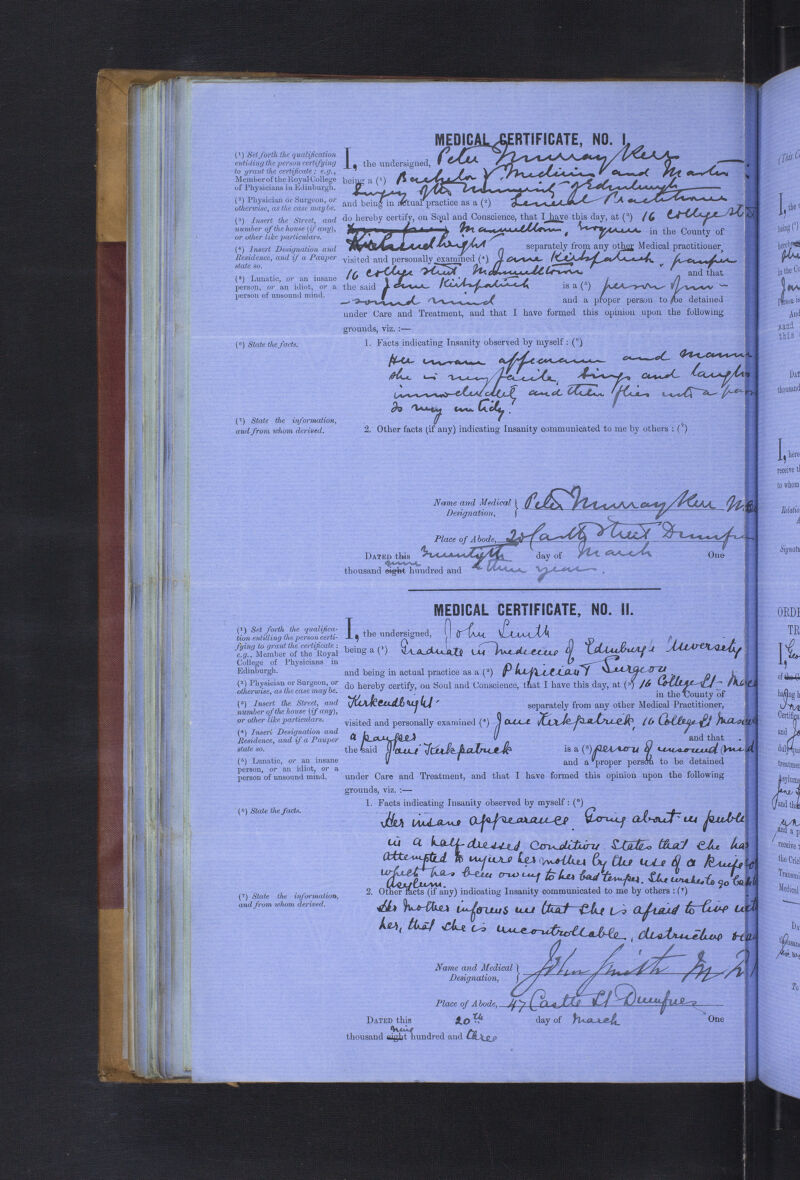 MEDICAL CERTIFICATE, NO. I.
(¹) Set forth the qualification
entitling the person certifying
to grant the certificate; e.g.,
Member of the Royal College
of Physicians in Edinburgh.
(²) Physician or Surgeon, or
otherwise, as the case may be.
(³) Insert the Street, and
number of the house (if any),
or other like particulars.
(⁴) Insert Designation and
Residence, and if a Pauper
state so.
(⁵) Lunatic, or an insane
person, or an idiot, or a
person of unsound mind.
I, the undersigned, Peter Murray Kerr
being a (¹) Bachelor of Medicine and Master
Surgery of the University of Edinburgh
and being in actual practice as a (²) General Practitioner
do hereby certify, on Soul and Conscience, that I have this day, at (³) 16 College
Maxwelltown, in the County of
Kirkcudbright separately from any other Medical practitioner,
visited and personally examined (⁴) Jane Kirkpatrick, pauper
16 College Street Maxwelltown and that
the said Jane Kirkpatrick is a (⁵) person of un-
-sound mind and a proper person to be detained
under Care and Treatment, and that I have formed this opinion upon the following
grounds, viz. :—
(⁶) State the facts.
1. Facts indicating Insanity observed by myself : (⁶)
Her insane appearance and
she is very facile, sings and laughs
immoderately and then flies into a
Is very untidy.
(⁷) State the information,
and from whom derived.
2. Other facts (if any) indicating Insanity communicated to me by others : (⁷)
Name and Medical
Designation, Peter Murray Kerr
Place of Abode, 20 Castle Street
DATED this Twentieth day of March One
thousand eight nine hundred and three years.
MEDICAL CERTIFICATE, NO. II.
(¹) Set forth the qualifica-
tion entitling the person certi-
fying to grant the certificate;
e.g., Member of the Royal
College of Physicians in
Edinburgh.
(²) Physician or Surgeon, or
otherwise, as the case may be.
(³) Insert the Street, and
number of the house (if any),
or other like particulars.
(⁴) Insert Designation and
Residence, and if a Pauper
state so.
(⁵) Lunatic, or an insane
person, or an idiot, or a
person of unsound mind.
I, the undersigned, John Smith
being a (¹) Graduate in Medicine of Edinburgh University
and being in actual practice as a (²) Physician & Surgeon
do hereby certify, on Soul and Conscience, that I have this day, at (³) 16 College St
in the County of
Kirkcudbright separately from any other Medical Practitioner,
visited and personally examined (⁴) Jane Kirkpatrick, 16 College St
a pauper and that
the said Jane Kirkpatrick is a (⁵) person of unsound mind
and a proper person to be detained
under Care and Treatment, and that I have formed this opinion upon the following
grounds, viz. :—
(⁶) State the facts.
1. Facts indicating Insanity observed by myself : (⁶)
Her insane appearance. Going about in
in a half dressed condition States that she has
attempted to injure her mother by the use of a knife
which has been owing to her bad temper. She wishes to go
Asylum.
(⁷) State the information,
and from whom derived.
2. Other facts (if any) indicating Insanity communicated to me by others : (⁷)
Her Mother informs me that she is afraid to live
her, that she is uncontrollable, destructive
Name and Medical
Designation, John Smith
Place of Abode, 47 Castle St Dumfries
DATED this 20th day of March One
thousand eight nine hundred and three